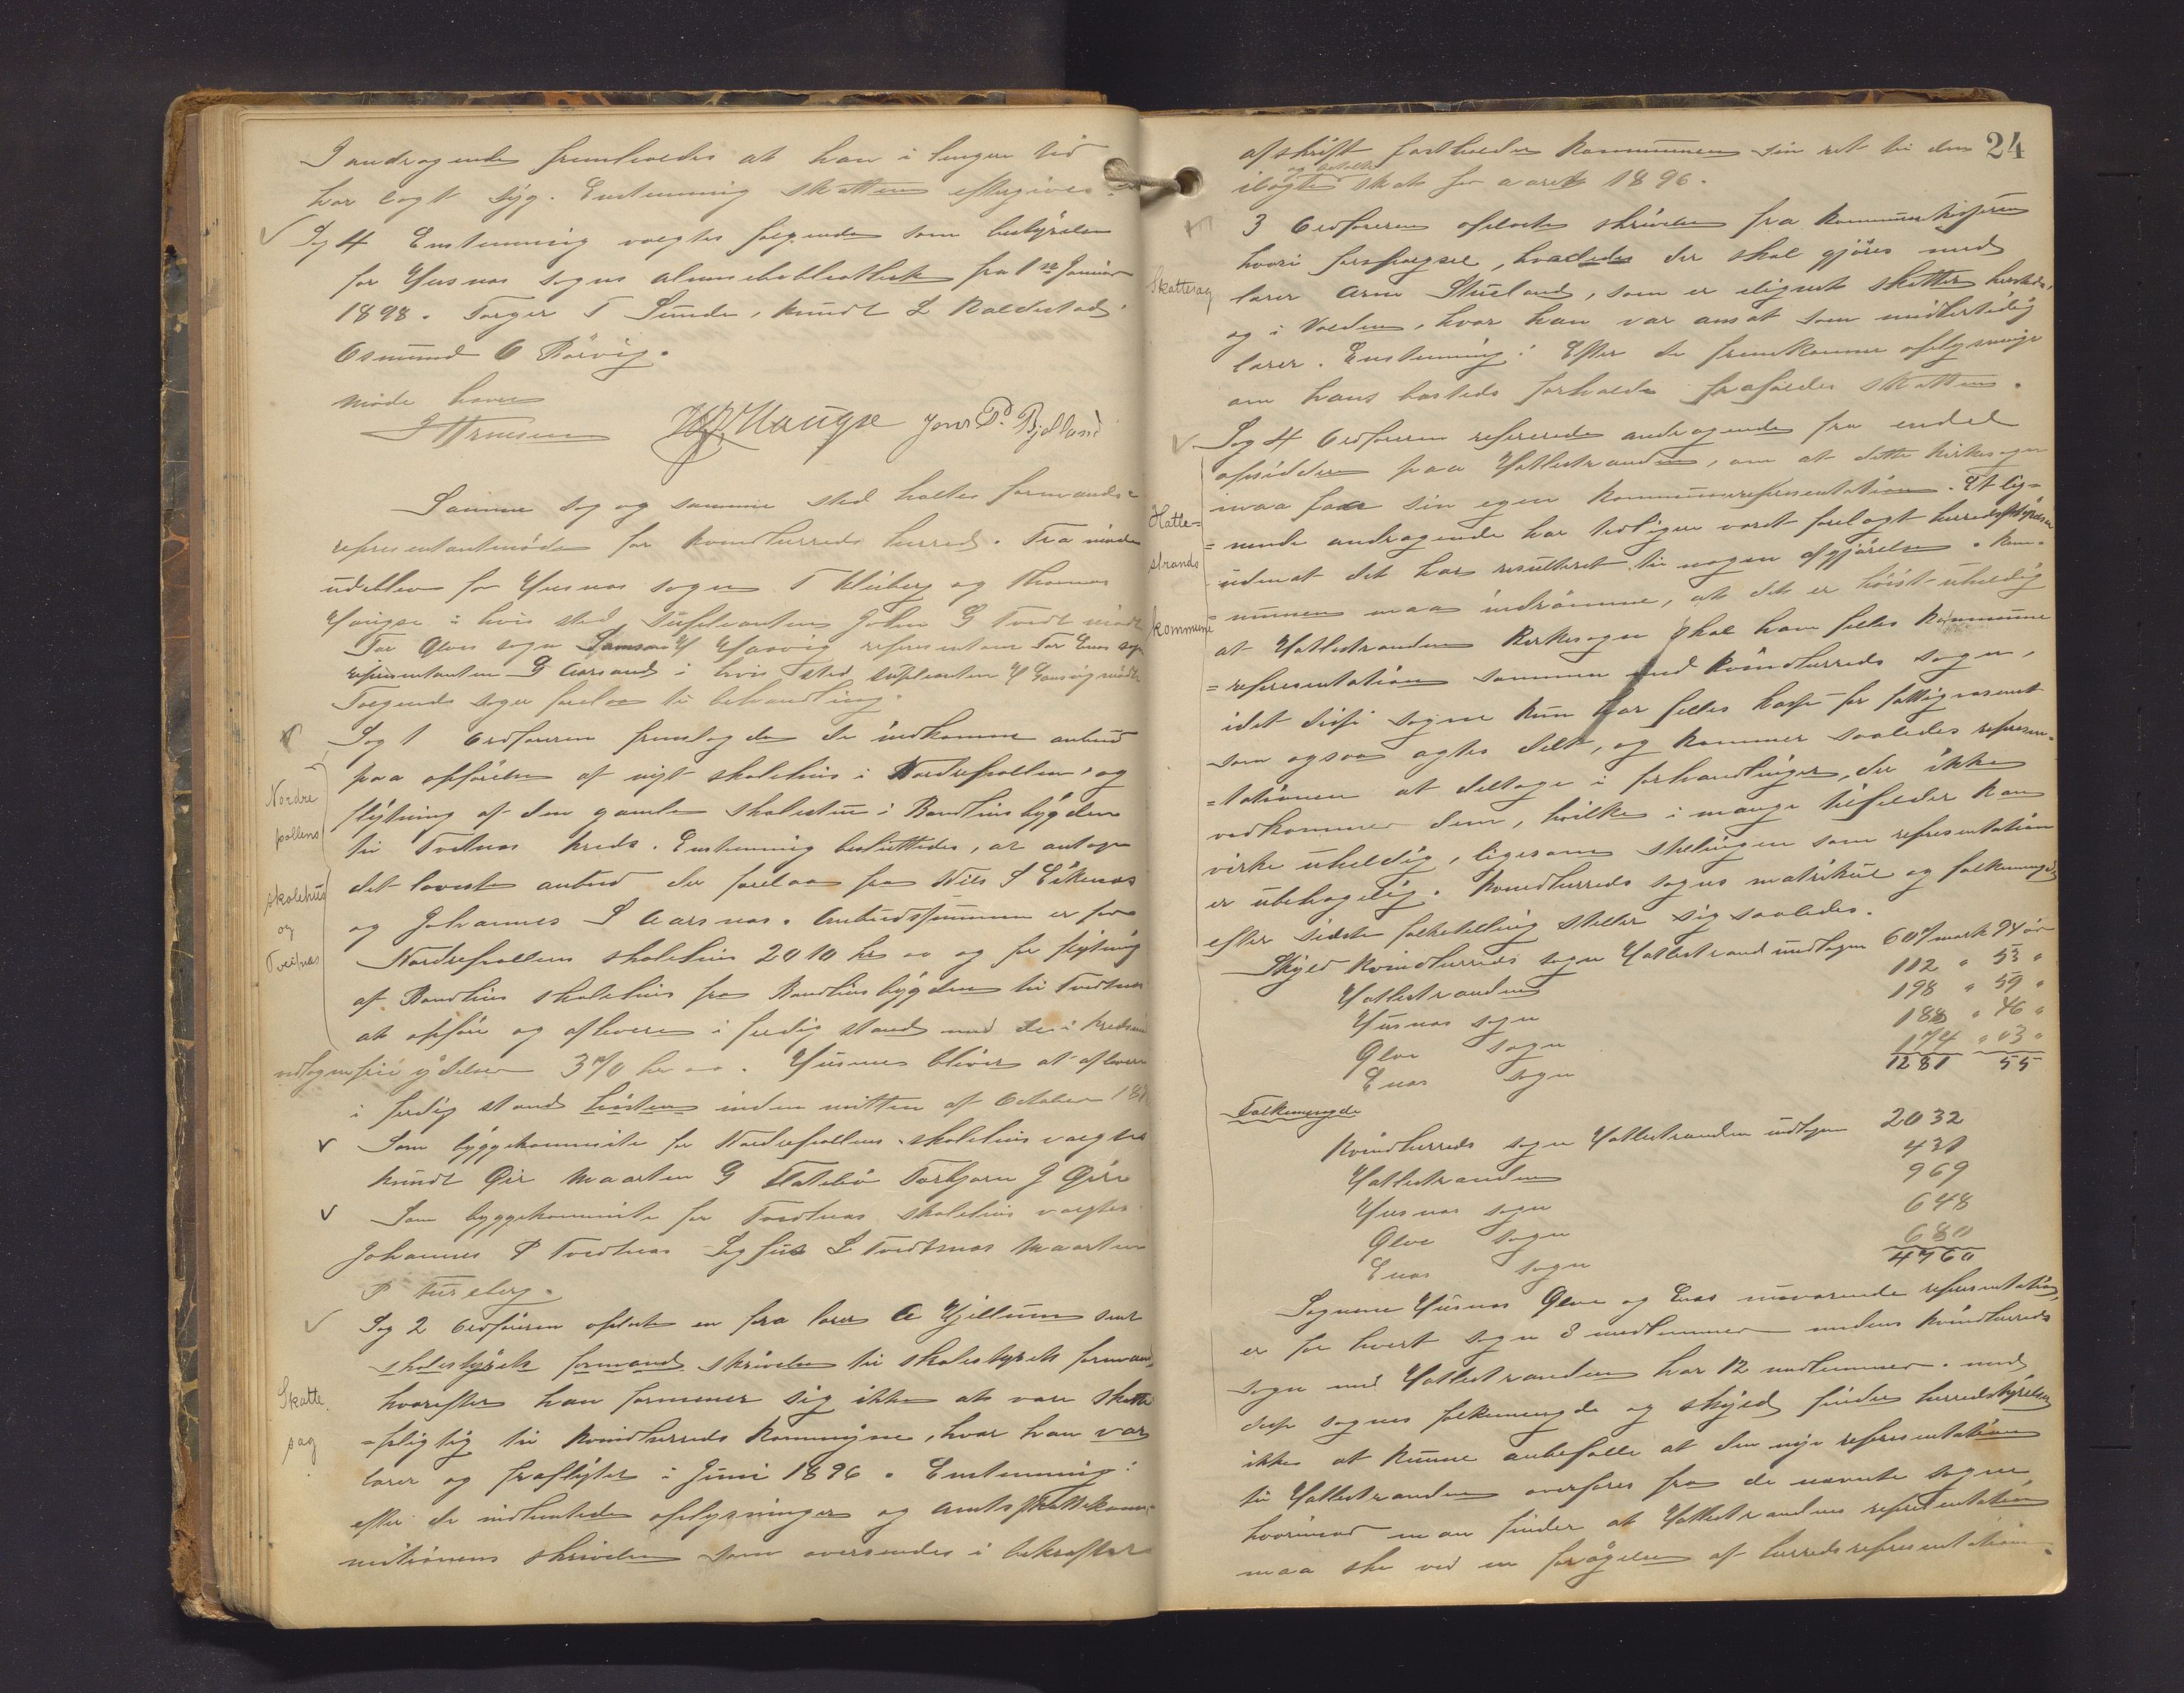 I andragende fremholdes at han i lengere tid
har lagt syg. Enstemmig skatten eftergives
Sag 4 Enstemmig valgtes følgende som bestyrelse
for Husnæs sogns almuebibliothek fra 1ste Januar
1898. Torger T Sunde, Knudt L Kaldestad
Osmund O Rørvig.
Møde hævet
Haugse Jons P. Bjelland
Samme dag og samme sted holtes formands-
representantmøde for Kvindherreds herred. Fra mødet
udeblev for Husnæs sogn T Kleiberg og Thomas
Haugse i hvis sted Supleanten John G Tvedt mødte
For Ølve sogn Samson H Haavig representant For Enæs sogn
representanten G Aarsand i hvis sted supleanten H Gausvig mødte
Følgende sager forelaa til behandling.
Nordre
pollens
skolehus
og
Tveitnæs
Sag 1 Ordføreren fremlagde de indkomne anbud
paa opførelse af nyt skolehus i Nordrepollen og
flytning af den gamle skolestue i Bondhusbygden
til Tvetnæs kreds. Enstemmig besluttedes, at antage
det laveste anbud der forelaa fra Nils S Eikenæs
og Johannes S Aarsnæs. Anbudssummen er for
Nordrepollens skolehus 2010 kr oo og for flytning
af Bondhus skolehus fra Bondhusbygden til Tvedtnæs
at opføre og aflevere i ferdig stand med de i kredsen
udlagnefrie ydelser 370 kr oo. Husene bliver at aflevere
i ferdig stand høsten inden mitten af October 189
Som byggekommite for Nordrepollens skolehus valgtes
Knudt Øir Maarten G Flatebø Torbjørn J Øire
Som byggekommite for Tvedtnæs skolehus valgtes
Johannes P Tvedtnæs Sjøfus L Tvedtnæs Maarten
P Fureberg.
Skatte
sag
Sag 2 Ordføreren oplæste en fra lærer A Hjellum sent
skolestyrets formand skrivelse til skolestyrets formand
hvorefter han formener sig ikke at være skatte
=pligtig til Kvindherreds Kommune, hvor han var
lærer og fraflyttet i Juni 1896. Enstemmig:
efter de indhentede oplysninger og amtsskattekom-
mitionens skrivelse som oversendes i bekræftet
24
afskrift fastholder Kommunen sin ret til den
og betalte
ilagte skat for aaret 1896.
Skattesag
3 Ordføreren oplæste skrivelse fra kommunekassereren
hvori forespørgsel, hvorledes der skal gjøres med
lærer Arne Stueland, som er ilignet skatter herstedes
og i Volden, hvor han var ansat som midlertidig
lærer. Enstemmig: Efter de fremkomne oplysninger
om hans bosteds forholde frafaldes skatten.
Hatle=
strands
kommune
Sag 4 Ordføreren refererede andragende fra endel
opsiddere paa Hatlestranden, om at dette kirkesogn
maa faa sin egen kommunerepresentation. Et lig=
=nende andragende har tidligere været forelagt herredsstyrelsen
uden at det har resulteret til nogen afgjørelse. Kom-
=munen maa indrømme, at det er høist uheldig
at Hatlestrandens Kirkesogn skal have felles Kommune
=representation sammen med Kvindherreds sogn,
idet disse sogne kun har felles kasse for fattigvæsenet
som ogsaa agtes delt, og kommer saaledes represen=
=tationen at deltage i forhandlinger, der ikke
vedkommer dem, hvilke i mange tilfelder kan
virke uheldig, ligesom stillingen som representation
er ubehagelig. Kvindherreds sogns matrikul og folkemengde
efter sidste folketelling stiller sig saaledes.
Skyld Kvindherreds sogn Hatlestrand undtagen 607 mark 94 ør
Hatlestranden 112 " 53 "
Husnæs sogn 198 " 59 "
Ølve sogn 188 " 46 "
Enæs sogn 174 " 03 "
1281 55
Folkemengde
Kvindherreds sogn Hatlestranden undtagen 2032
Hatlestranden 431
Husnæs sogn 969
Ølve sogn 648
Enæs sogn 680
4760
Sognene Husnæs Ølve og Enæs nuværende representation,
er for hvert sogn 8 medlemmer medens Kvindherreds
sogn med Hatlestranden har 12 medlemmer. med
disse sognes folkemengde og skyld finder herredstyrelsen
ikke at kunne anbefalle at den nye representation
til Hatlestranden overføres fra de nævnte sogne,
hvorimod man finder at Hatlestrandens representation
maa ske ved en forøgelse af herredsrepresentationen.